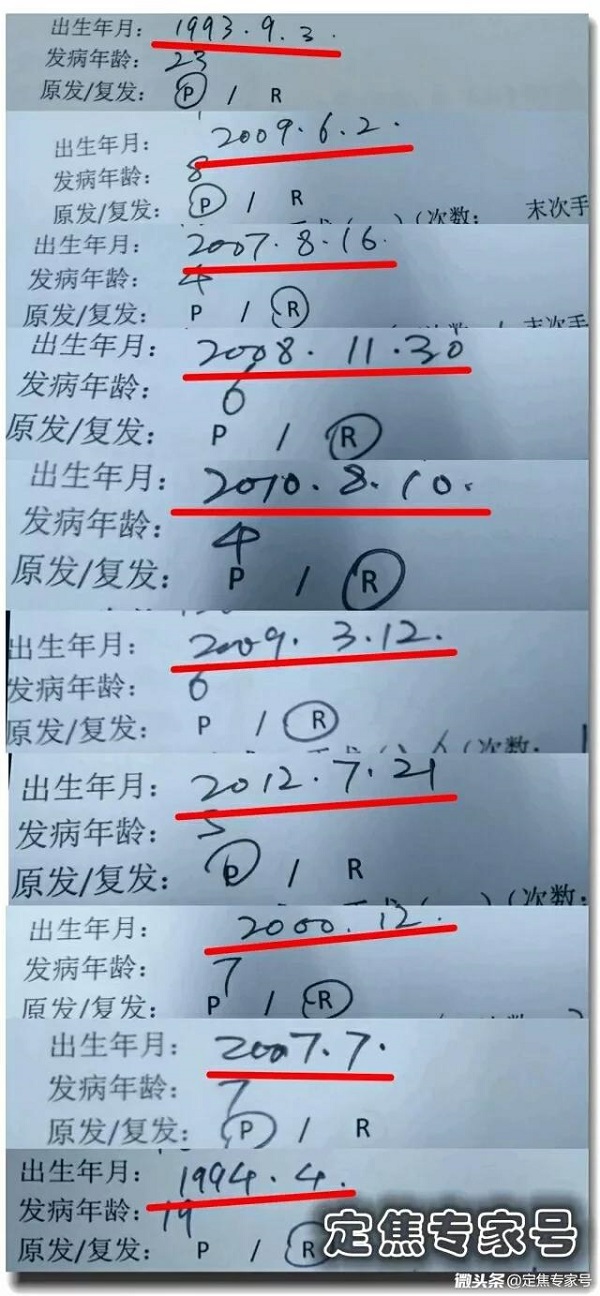 出生年月： 1993.9.3.
发病年龄： 23
原发/复发： P / R
出生年月： 2009.6.2.
发病年龄： 8
原发/复发： P / R
(次数： 末次手
出生年月： 2007.8.16.
发病年龄： 4
原发/复发： P / R
末次手
出生年月： 2008.11.30
发病年龄： 6
原发/复发： P / R
出生年月： 2010.8.10.
发病年龄： 4
原发/复发： P / R
出生年月： 2009.3.12.
发病年龄： 6
原发/复发： P / R
(次数：
出生年月： 2012.7.21
发病年龄： 5
原发/复发： P / R
(次数：
出生年月： 2000.12.
发病年龄： 7
原发/复发： P / R
出生年月： 2007.7.
发病年龄： 7
原发/复发： P / R
出生年月： 1994.4.
发病年龄： 19
原发/复发： P / R
定焦专家号
微头条@定焦专家号